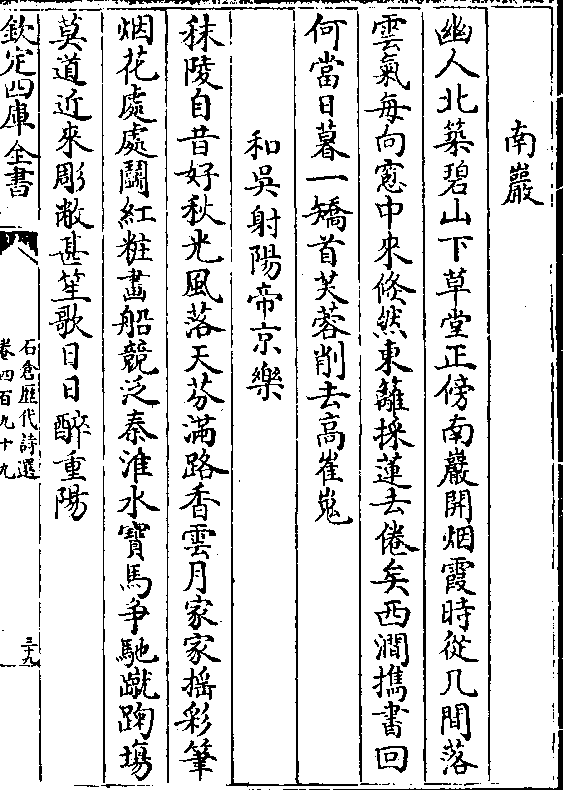 南巖
幽人北築碧山下草堂正傍南巖開烟霞時從几間落
雲氣每向窓中來倐然東籬採蓮去倦矣西澗擕書回
何當日暮一矯首芙蓉削去高崔嵬
和吳射陽帝京樂
秣陵自昔好秋光風落天芬滿路香雲月家家揺彩筆
烟花處處鬭紅粧畵船競泛秦淮水寳馬争馳蹴踘塲
莫道近來彫敝甚笙歌日日醉重陽
欽定四庫全書
石倉歷代詩選
卷四百九十九
三十九